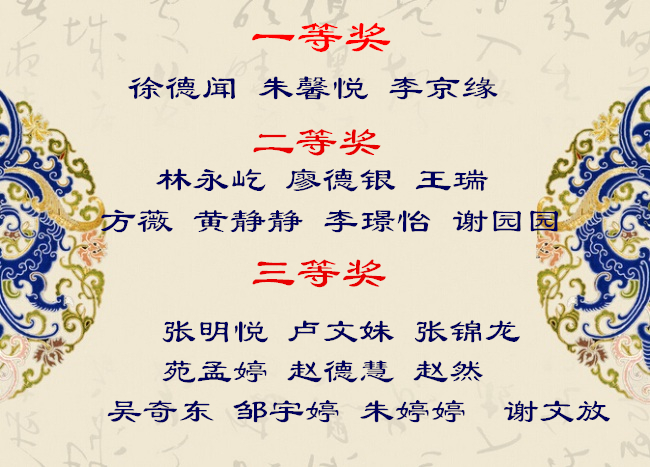 一等奖
徐德闻 朱馨悦 李京缘
二等奖
林永屹 廖德银 王瑞
方薇 黄静静 李璟怡 谢园园
三等奖
张明悦 卢文妹 张锦龙
苑孟婷 赵德慧 赵然
吴奇东 邹宇婷 朱婷婷 谢文放